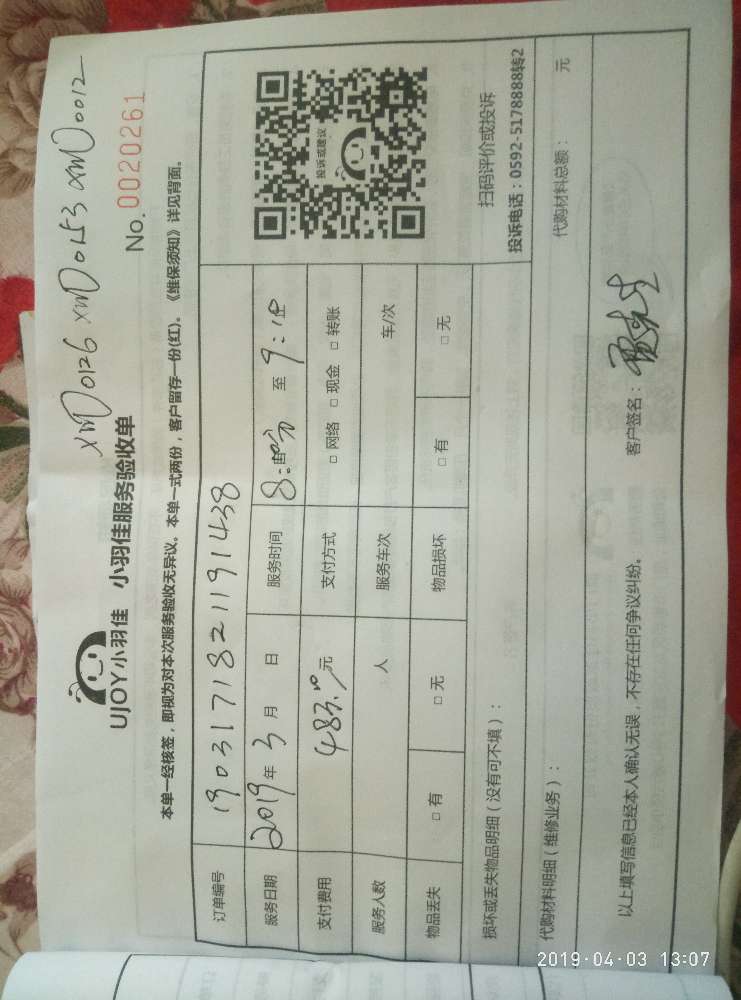 xmD0126 xmD0153 xmD0012
UJOY小羽佳 小羽佳服务验收单
No. 0020261
本单一经核签，即视为对本次服务验收无异议。本单一式两份，客户留存一份(红)。《维保须知》详见背面。
订单编号 1903171821191438
服务日期 2019年3月 日 服务时间 8: 至 9:
支付费用 483.00元 支付方式 □ 网络 □ 现金 □ 转账
服务人数 人 服务车次 车/次
物品丢失 □ 有 □ 无 物品损坏 □ 有 □ 无
投诉或建议
扫码评价或投诉
投诉电话：0592-5178888转2
损坏或丢失物品明细（没有可不填）：
代购材料明细（维修业务）： 代购材料总额： 元
以上填写信息已经本人确认无误，不存在任何争议纠纷。 客户签名： 先生
2019-04-03 13:07